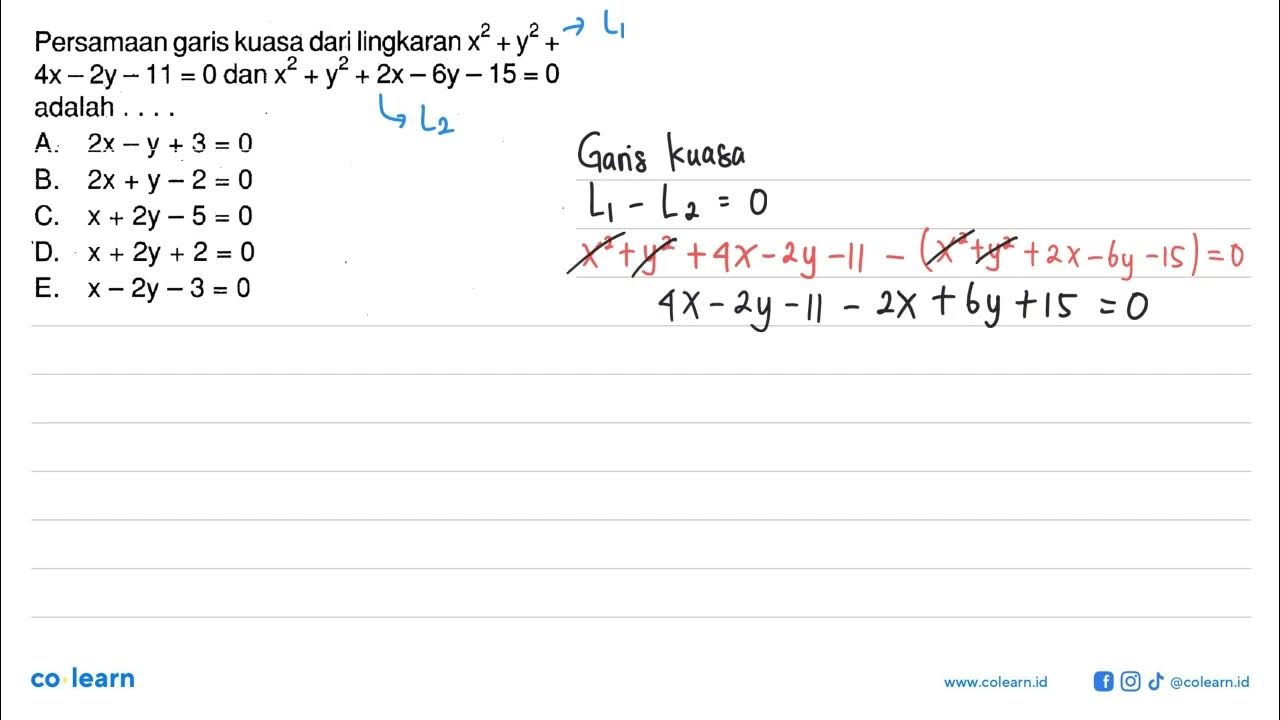 Persamaan garis kuasa dari lingkaran x² + y² + → L₁
4x – 2y – 11 = 0 dan x² + y² + 2x – 6y – 15 = 0
adalah . . . .
↳ L₂
A. 2x – y + 3 = 0
B. 2x + y – 2 = 0
C. x + 2y – 5 = 0
D. x + 2y + 2 = 0
E. x – 2y – 3 = 0
Garis kuasa
L₁ - L₂ = 0
x² + y² + 4x - 2y - 11 - (x² + y² + 2x - 6y - 15) = 0
4x - 2y - 11 - 2x + 6y + 15 = 0
co learn
www.colearn.id
@colearn.id